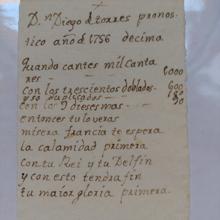 Dⁿ Diego de torres prono
stico año d 1756 decima
Quando cantes mil canta
res 1000
con los trescientos doblados 600
y so duplicados 180
con los 9 dieses mas 90
entonces tu lo veras
misera francia te espera
la calamidad primera
con tu Rei y tu Delfin
y con esto tendra fin
tu maior gloria primera.